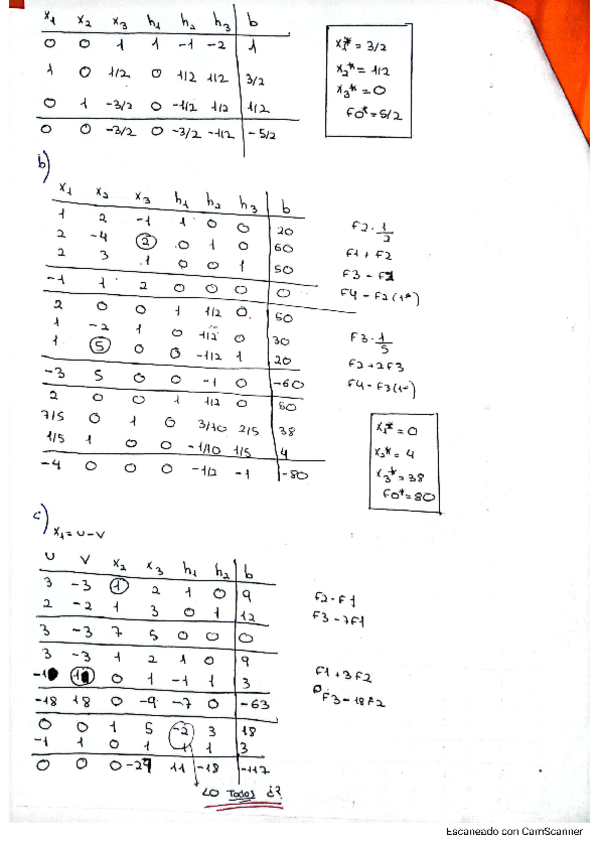 x₁ x₂ x₃ h₁ h₂ h₃ b
0 0 1 1 -1 -2 1
1 0 1/2 0 1/2 1/2 3/2
0 1 -3/2 0 -1/2 1/2 1/2
0 0 -3/2 0 -3/2 -1/2 -5/2
x₁* = 3/2
x₂* = 1/2
x₃* = 0
f0* = 5/2
b)
x₁ x₂ x₃ h₁ h₂ h₃ b
1 2 -1 1 0 0 20
2 -4 2 0 1 0 60
2 3 1 0 0 1 50
-1 1 2 0 0 0 0
F2·1/2
F1+F2
F3-F2
F4-F2(1ª)
2 0 0 1 1/2 0 50
1 -2 1 0 1/2 0 30
1 5 0 0 -1/2 1 20
-3 5 0 0 -1 0 -60
F3·1/5
F2+2F3
F4-F3(1ª)
2 0 0 1 1/2 0 50
7/5 0 1 0 3/10 2/5 38
1/5 1 0 0 -1/10 1/5 4
-4 0 0 0 -1/2 -1 -80
x₁* = 0
x₂* = 4
x₃* = 38
f0* = 80
c)
x₁ = U-V
U V x₂ x₃ h₁ h₂ b
3 -3 1 2 1 0 9
2 -2 1 3 0 1 12
3 -3 7 5 0 0 0
F2-F1
F3-7F1
3 -3 1 2 1 0 9
-1 1 0 1 -1 1 3
-18 18 0 -9 -7 0 -63
F1+3F2
F3-18F2
0 0 1 5 -2 3 18
-1 1 0 1 -1 1 3
0 0 0 -27 11 -18 -117
<0 Todos ¿?
Escaneado con CamScanner